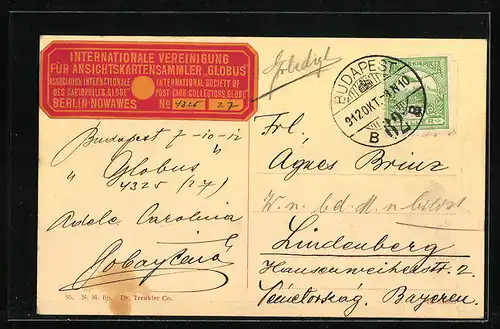 INTERNATIONALE VEREINIGUNG
FÜR ANSICHTSKARTENSAMMLER „GLOBUS"
ASSOCIATION INTERNATIONALE INTERNATIONAL SOCIETY OF
DES CARTOPHILES „GLOBE" POST CARD COLLECTORS „GLOBE"
BERLIN-NOWAWES No 4325 27
BUDAPEST
912 OKT
B 62 B
Budapest 7-10-12
„Globus"
4325 (27)
Adele Carolina
Frl.
Agnes Brinz
Lindenberg
Hausenweiherstr. 2
Németország, Bayern.
65. N. M. Bp. Dr. Trenkler Co.